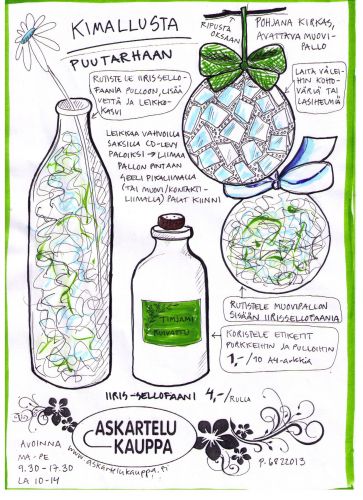 KIMALLUSTA
PUUTARHAAN
RUTISTELE IIRISSELLO-
FAANIA PULLOON, LISÄÄ
VETTÄ JA LEIKKO-
KASVI
RIPUSTA
OKSAAN
POHJANA KIRKAS,
AVATTAVA MUOVI-
PALLO
LAITA VÄLEI-
HIN KOHO-
VÄRIÄ TAI
LASIHELMIÄ
LEIKKAA VAHVOILLA
SAKSILLA CD-LEVY
PALOIKSI → LIIMAA
PALLON PINTAAN
GEELI PIKALIIMALLA
(TAI MUOVI/KONTAKTI-
LIIMALLA) PALAT KIINNI
TIMJAMI
KUIVATTU
RUTISTELE MUOVIPALLON
SISÄÄN IIRISSELLOFAANIA
KORISTELE ETIKETIT
PURKKEIHIN JA PULLOIHIN
1,-/10 A4-arkkia
IIRIS-SELLOFAANI 4,-/RULLA
ASKARTELU
KAUPPA
www.askartelukauppa.fi
AVOINNA
MA-PE
9.30-17.30
LA 10-14
P. 6822013